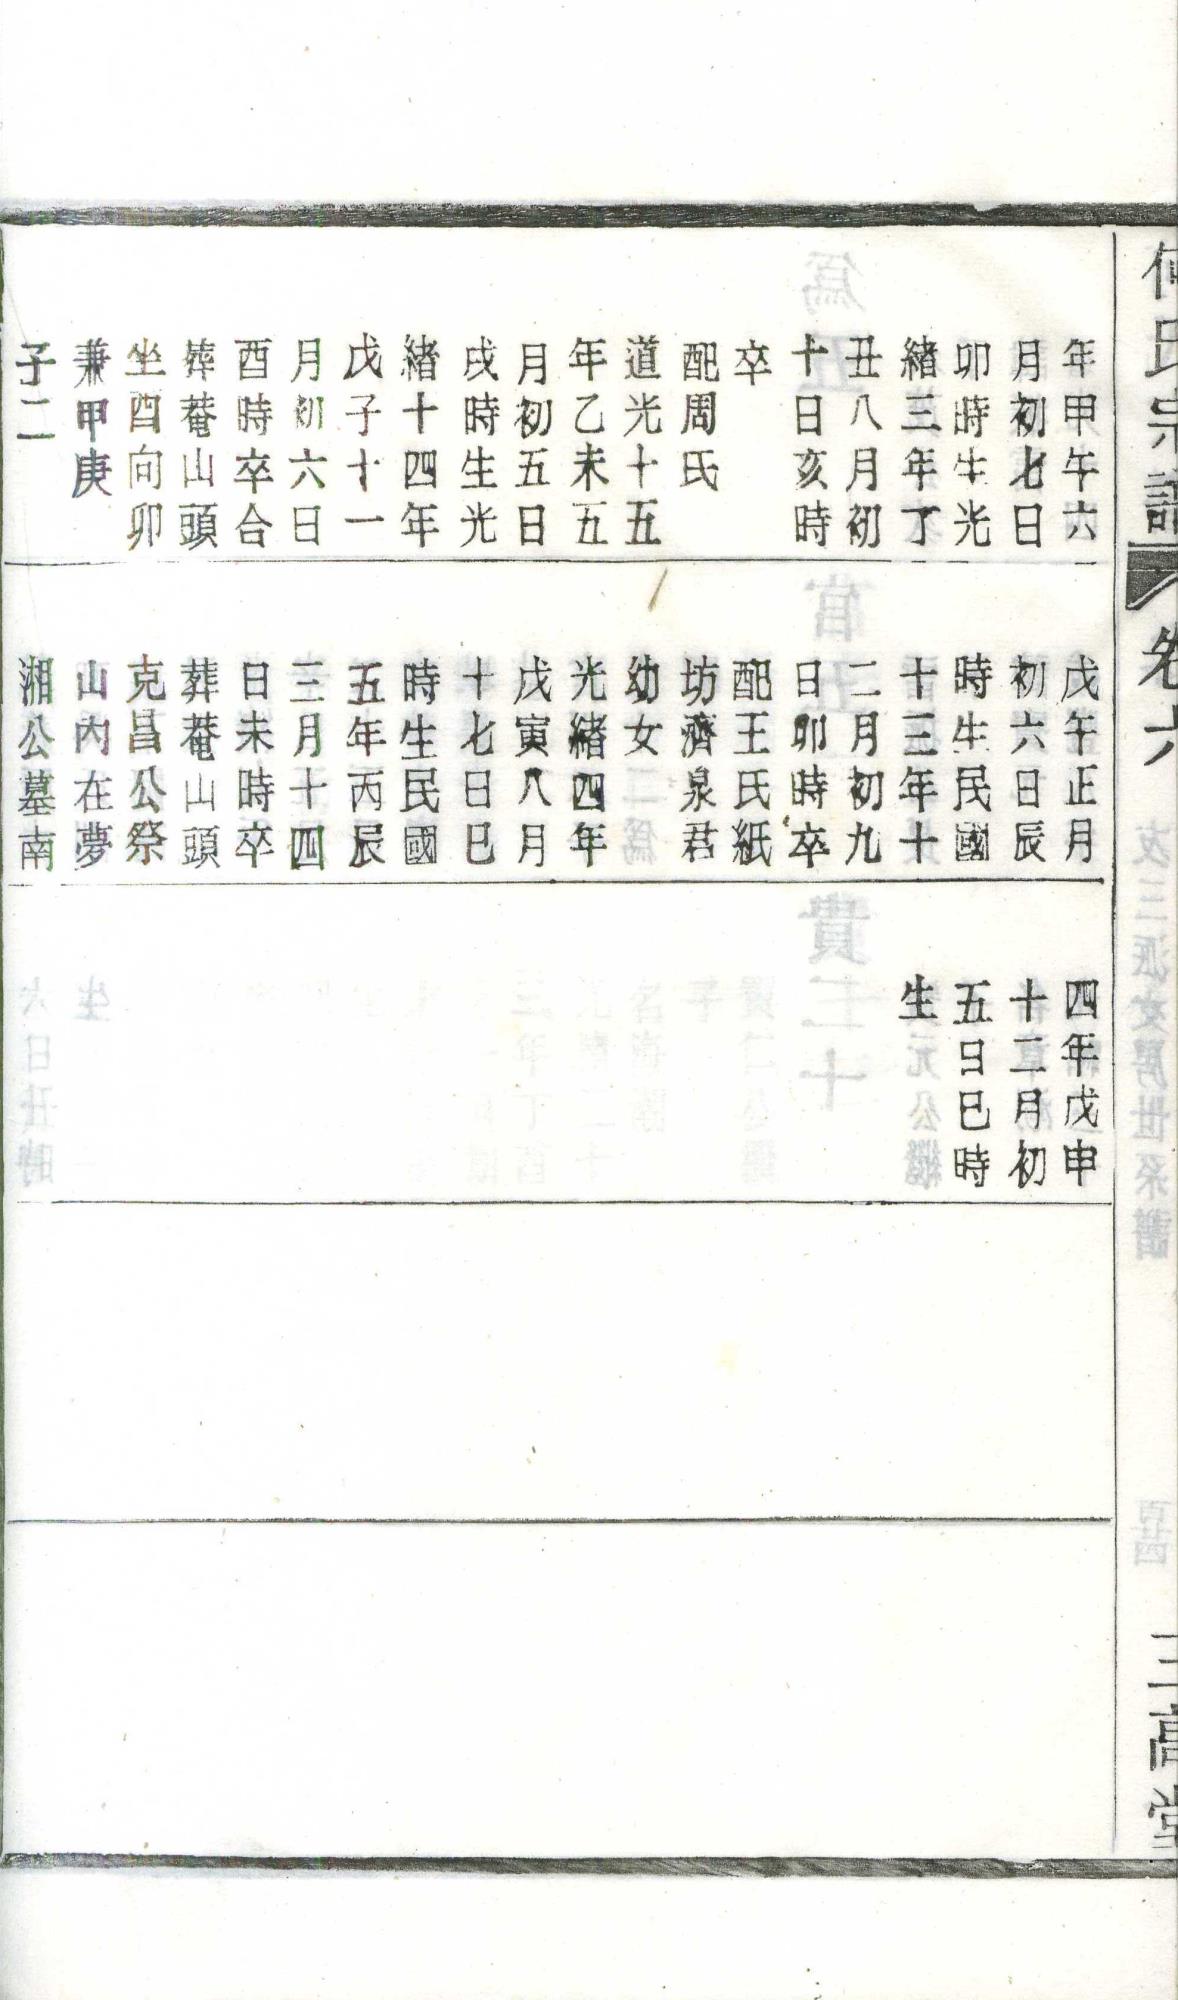 何氏宗譜
卷六
三高堂
年甲午六
月初七日
卯時生光
緒三年丁
丑八月初
十日亥時
卒
配周氏
道光十五
年乙未五
月初五日
戌時生光
緒十四年
戊子十一
月初六日
酉時卒合
葬菴山頭
坐酉向卯
兼甲庚
子二
戊午正月
初六日辰
時生民國
十三年十
二月初九
日卯時卒
配王氏紙
坊濟泉君
幼女
光緒四年
戊寅八月
十七日巳
時生民國
五年丙辰
三月十四
日未時卒
葬菴山頭
克昌公祭
山內在夢
湘公墓南
四年戊申
十二月初
五日巳時
生